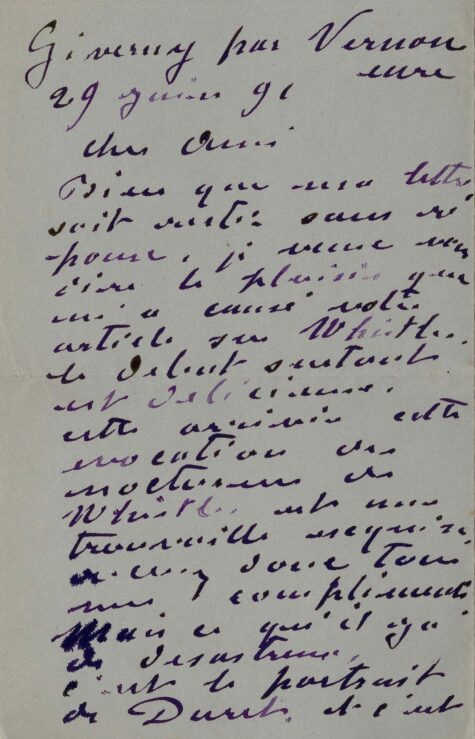 Giverny par Vernon
eure
29 juin 91
cher ami
Bien que ma lettre
soit restée sans ré
ponse, je veux vous
dire le plaisir que
m'a causé votre
article sur Whistler.
le debut surtout
est delicieux.
cette arrivée cette
evocation des
nocturnes de
Whistler est une
trouvaille exquise
donc tous
mes compliments
Mais ce qu'il y a
de desastreux,
c'est le portrait
de Duret, et c'est